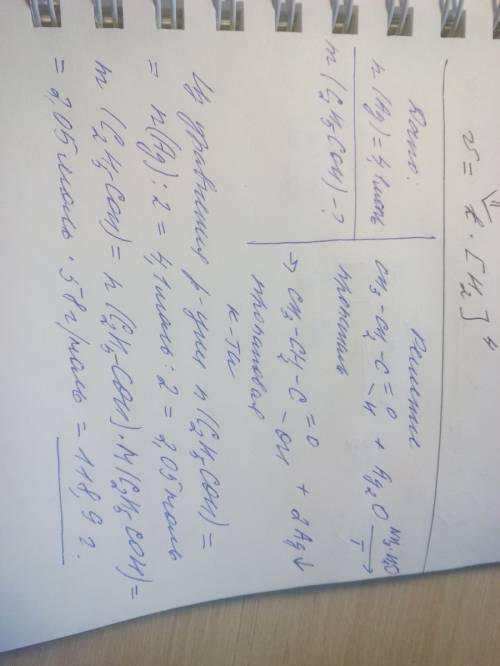 v = k · [H₂]⁴
Дано:
n(Ag) = 4,1 моль
m(C₂H₅COH) - ?
Решение
CH₃-CH₂-C=O -H + Ag₂O NH₃·H₂O T →
пропаналь
→ CH₃-CH₂-C=O -OH + 2Ag↓
пропановая
к-та
Из уравнения р-ции n(C₂H₅COH) =
= n(Ag) : 2 = 4,1 моль : 2 = 2,05 моль
m (C₂H₅COH) = n (C₂H₅COH) · M(C₂H₅COH) =
= 2,05 моль · 58 г/моль = 118,9 г.